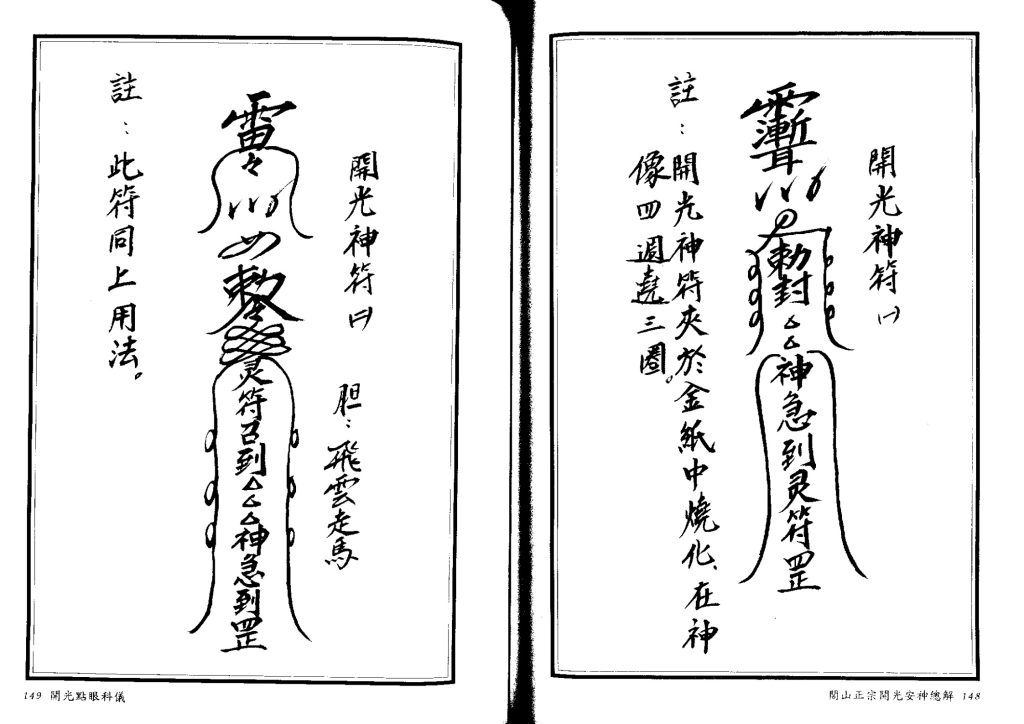 開光神符㈠
勅封△△神急到灵符罡
註：開光神符夾於金紙中燒化、在神
像四週遶三圈。
閭山正宗開光安神總解 148
開光神符㈡
胆：飛雲走馬
雷
勅
灵符召到△△△神急到罡
註：此符同上用法。
149 開光點眼科儀